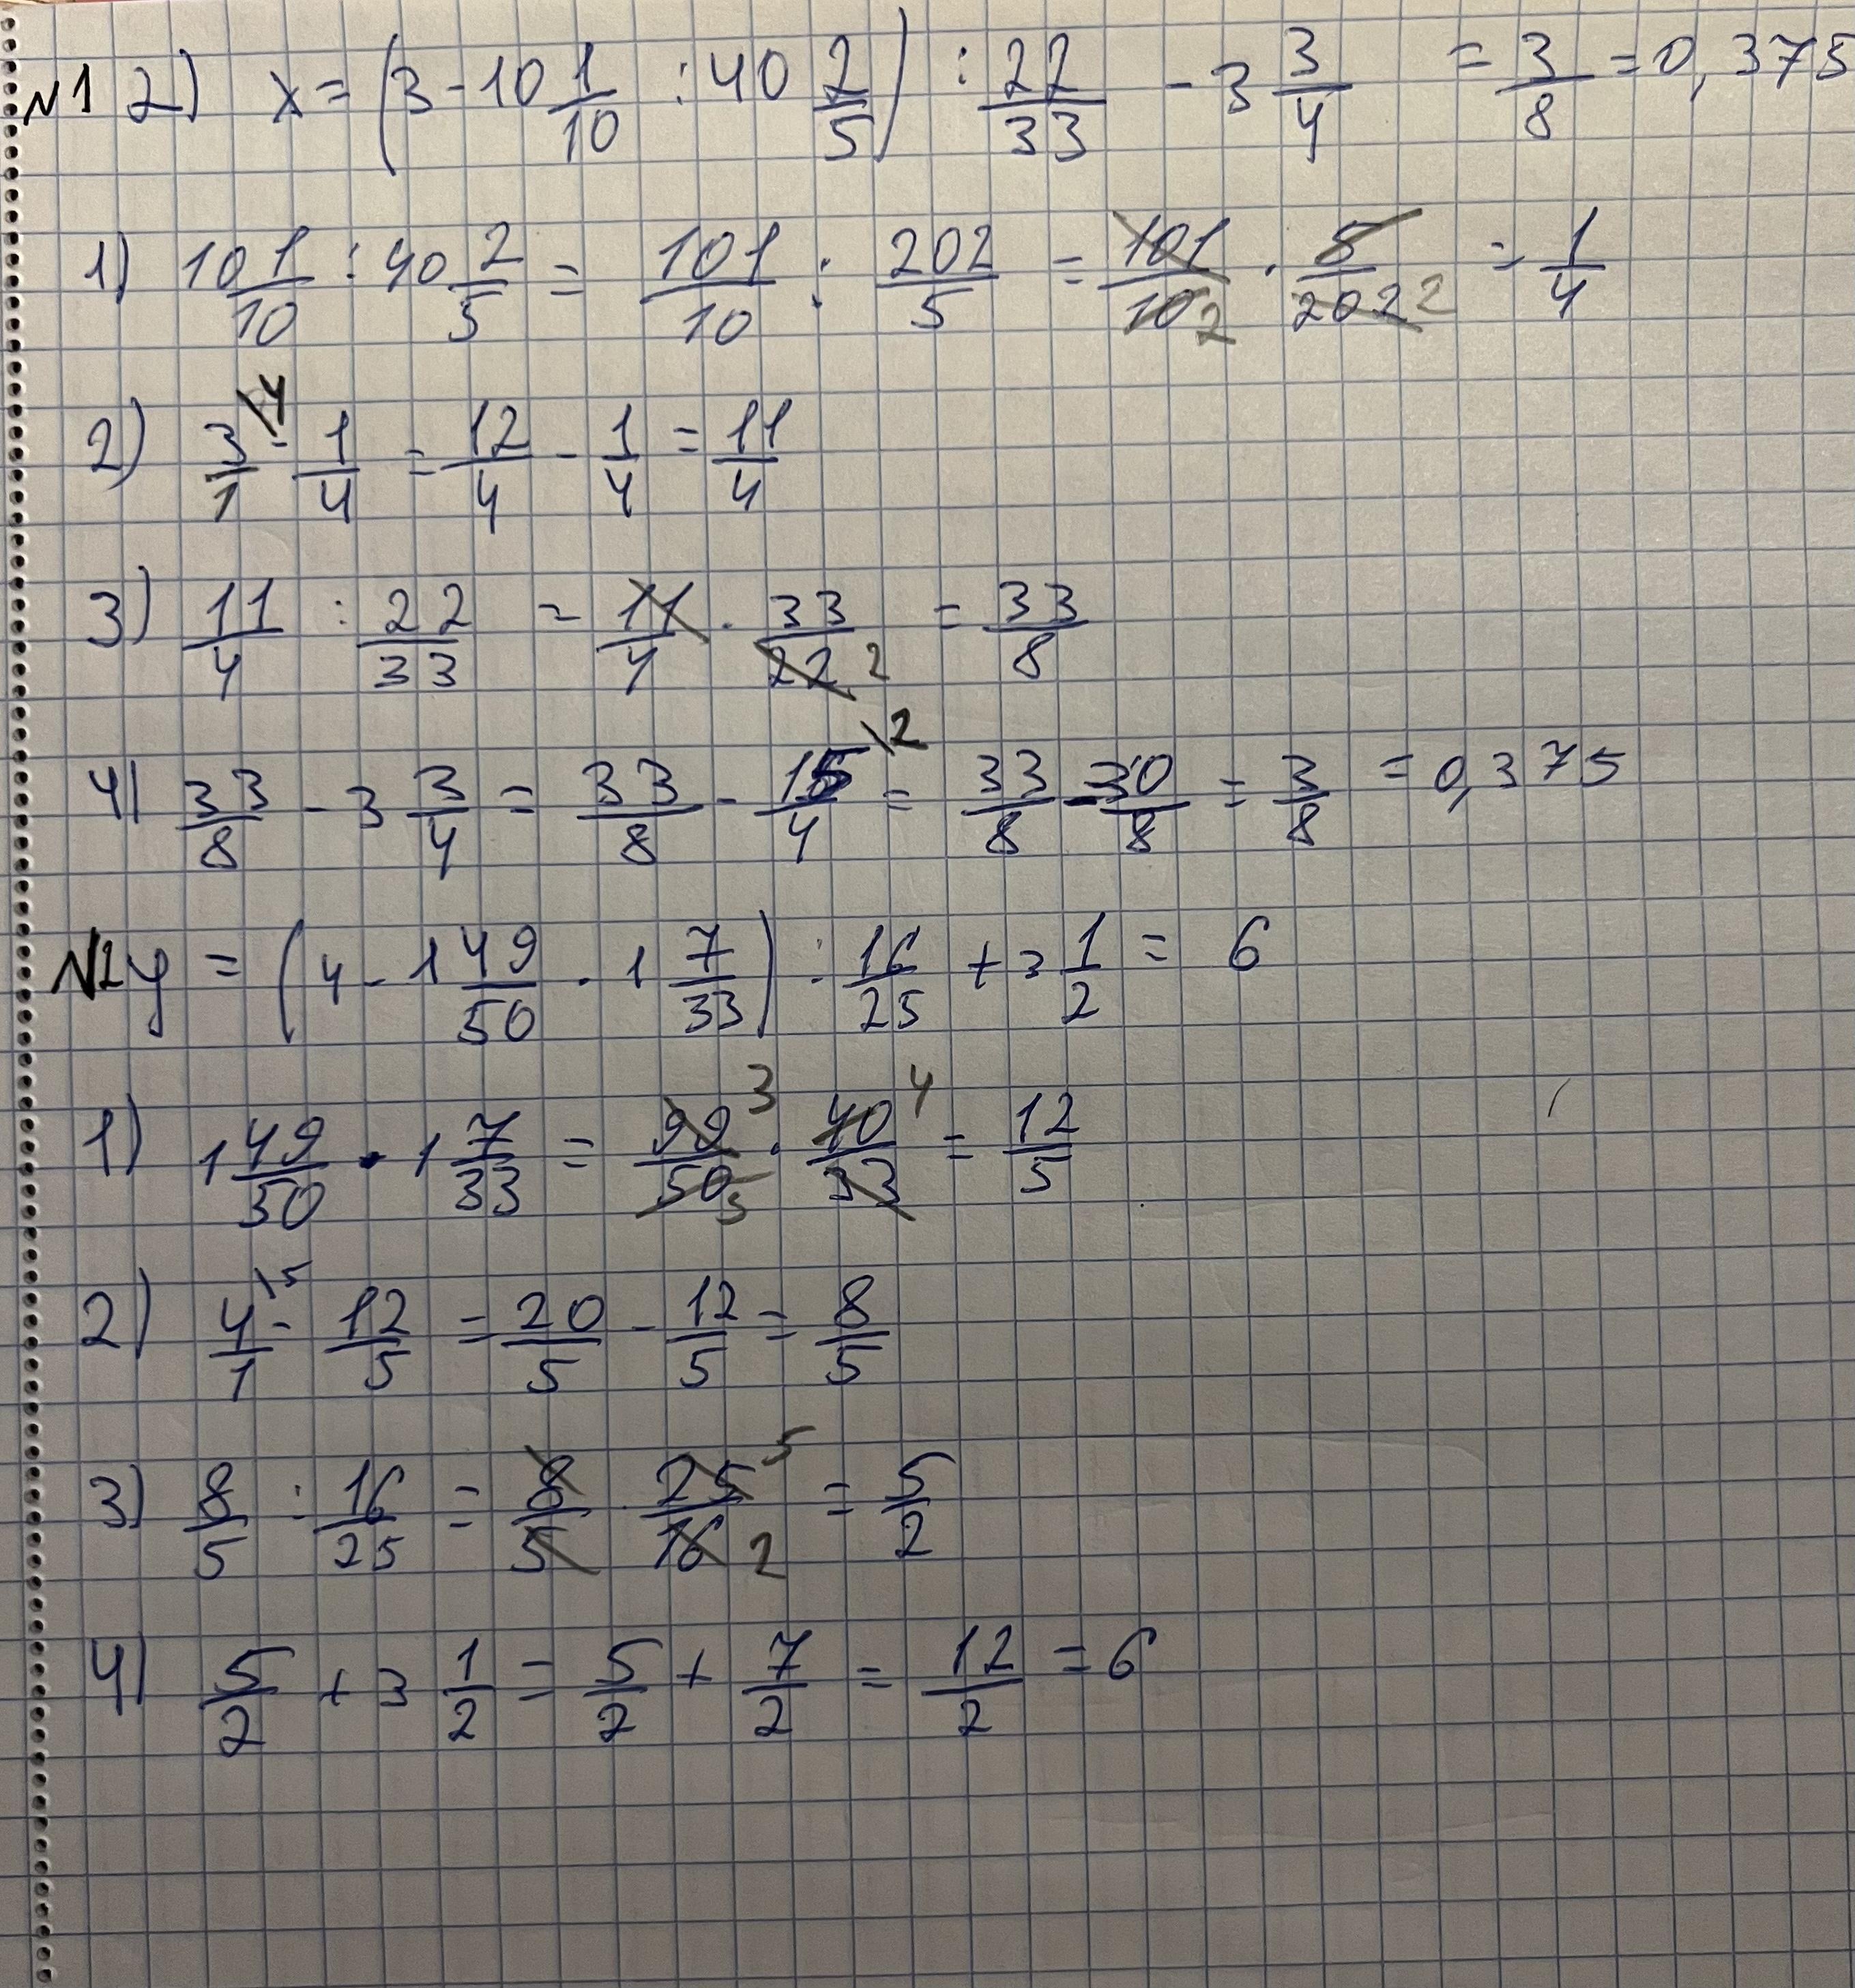 №1 2) x = (3 - 10 1/10 : 40 2/5) : 22/33 - 3 3/4 = 3/8 = 0,375
1) 10 1/10 : 40 2/5 = 101/10 : 202/5 = 101/10 2 · 5/202 2 = 1/4
2) 3/1 \4 - 1/4 = 12/4 - 1/4 = 11/4
3) 11/4 : 22/33 = 11/4 · 33/22 2 = 33/8
4) 33/8 - 3 3/4 = 33/8 - 15/4 \2 = 33/8 - 30/8 = 3/8 = 0,375
y = (4 - 1 49/50 · 1 7/33) : 16/25 + 3 1/2 = 6
1) 1 49/50 · 1 7/33 = 99/50 3 5 · 40/33 4 = 12/5
2) 4/1 \5 - 12/5 = 20/5 - 12/5 = 8/5
3) 8/5 : 16/25 = 8/5 · 25/16 5 2 = 5/2
4) 5/2 + 3 1/2 = 5/2 + 7/2 = 12/2 = 6